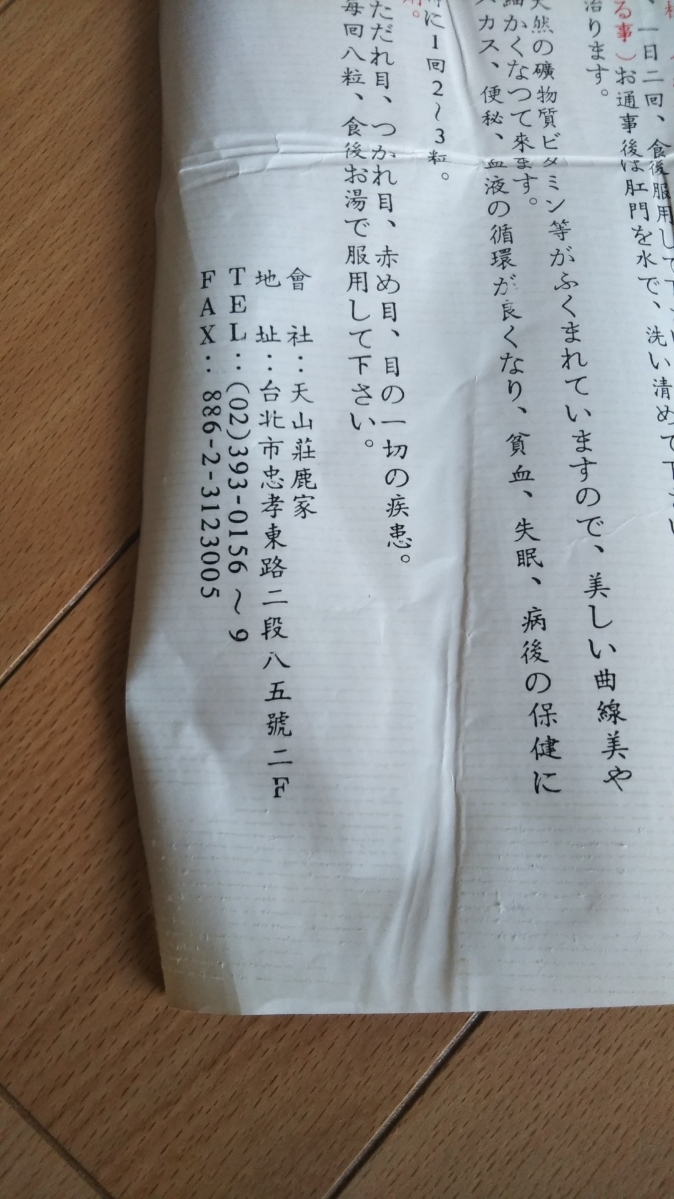 、一日二回、食後服用して下さい
る事）お通事後は肛門を水で、洗い清めて下さい
治ります。
天然の礦物質ビタミン等がふくまれていますので、美しい曲線美や
細かくなつて來ます。
スカス、便秘、血液の循環が良くなり、貧血、失眠、病後の保健に
時に1回2～3粒。
ただれ目、つかれ目、赤め目、目の一切の疾患。
毎回八粒、食後お湯で服用して下さい。
會　社：天山莊鹿家
地　址：台北市忠孝東路二段八五號二F
TEL：(02)393-0156～9
FAX：886-2-3123005